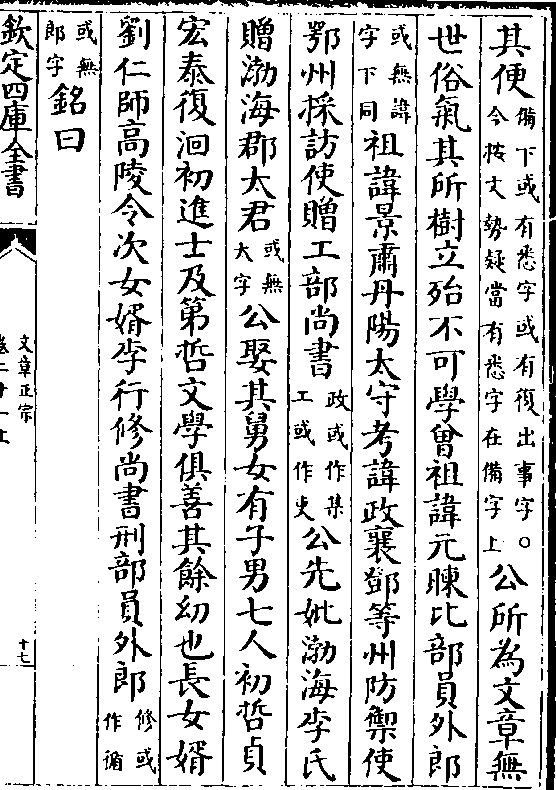 其便備下或有悉字或有復出事字○今按文勢疑當有悉字在備字上公所為文章無
世俗氣其所樹立殆不可學曾祖諱元暕比部員外郎
或無諱字下同祖諱景肅丹陽太守考諱政襄鄧等州防禦使
鄂州採訪使贈工部尚書政或作某工或作吏公先妣渤海李氏
贈渤海郡太君或無大字公娶其舅女有子男七人初哲貞
宏泰復洄初進士及第哲文學俱善其餘幼也長女婿
劉仁師高陵令次女婿李行修尚書刑部員外郎修或作循
或無郎字銘曰
欽定四庫全書
文章正宗
十七